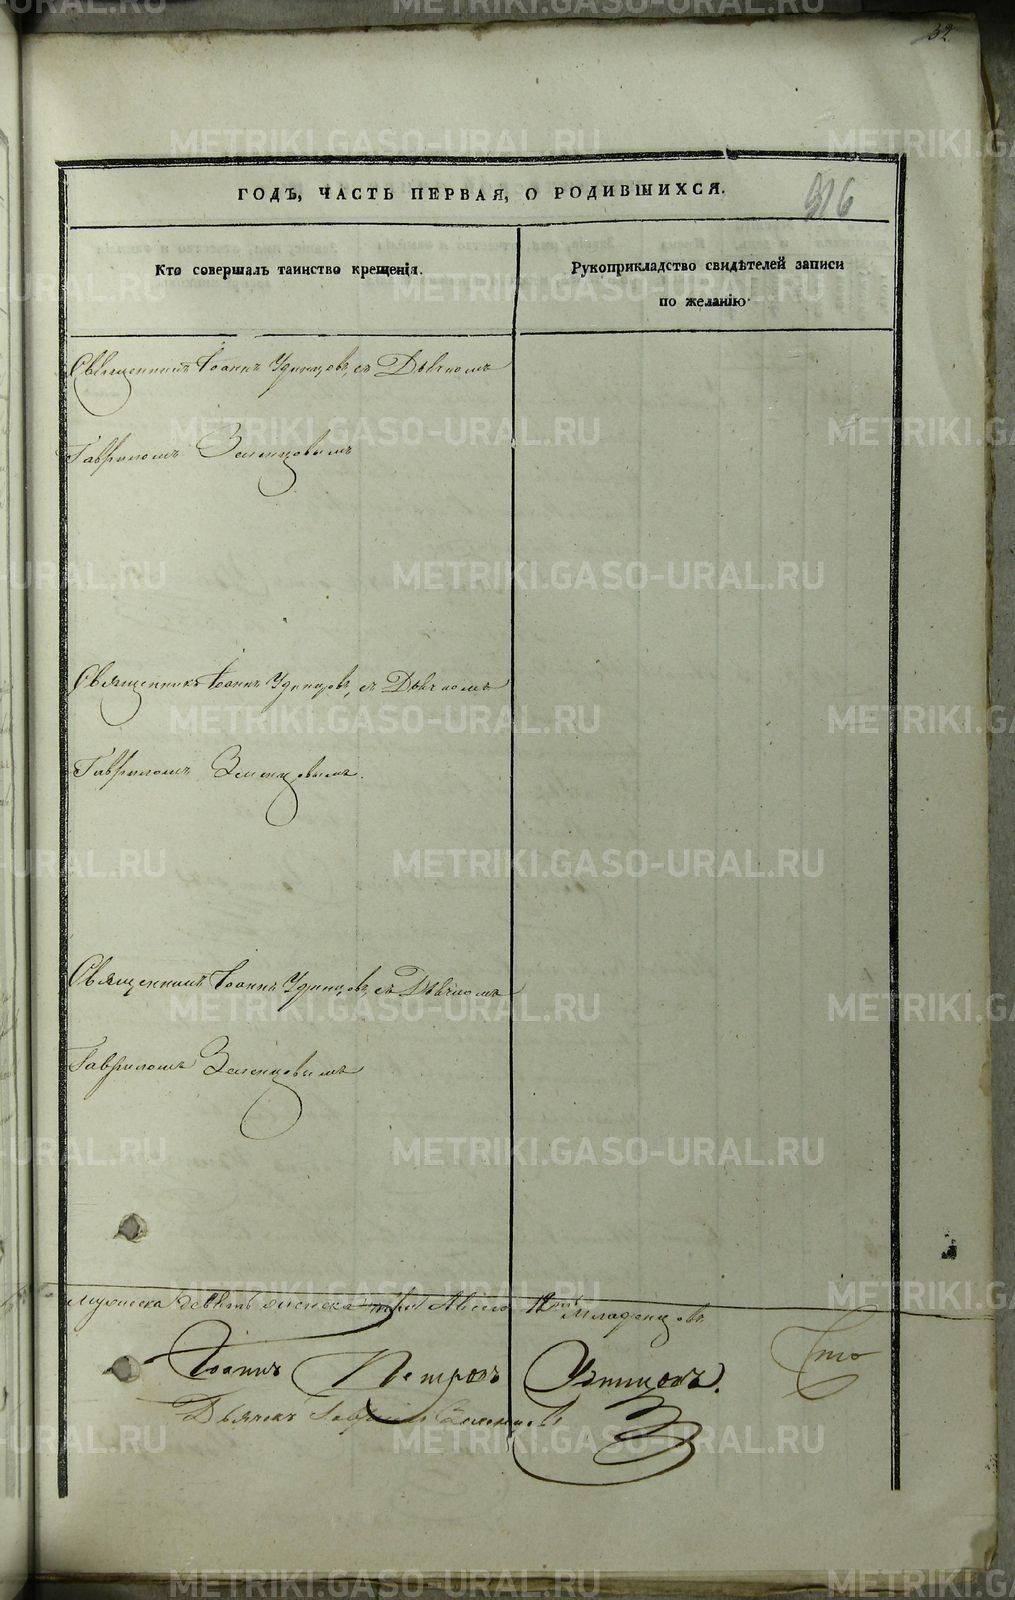 32
ГОДЪ, ЧАСТЬ ПЕРВАЯ, О РОДИВШИХСЯ.
316
Кто совершалъ таинство крещенія.
Рукоприкладство свидѣтелей записи
по желанію
Священникъ Іоаннъ Удинцовъ, съ Дьячкомъ
Гавриломъ Зеленцовымъ
Священникъ Іоаннъ Удинцовъ, съ Дьячкомъ
Гавриломъ Зеленцовымъ.
Священникъ Іоаннъ Удинцовъ, съ Дьячкомъ
Гавриломъ Зеленцовымъ
мужеска девять женска три 12 Младенцовъ
Что
Іоаннъ Петровъ Удинцовъ.
Дьячекъ Гаврило Зеленцовъ
METRIKI.GASO-URAL.RU